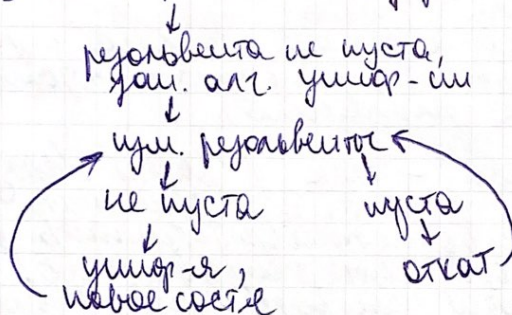 резольвента не пуста,
зап. алг. унифик-ции
изм. резольвенты
не пуста
пуста
униф-я,
откат
новое сост-е